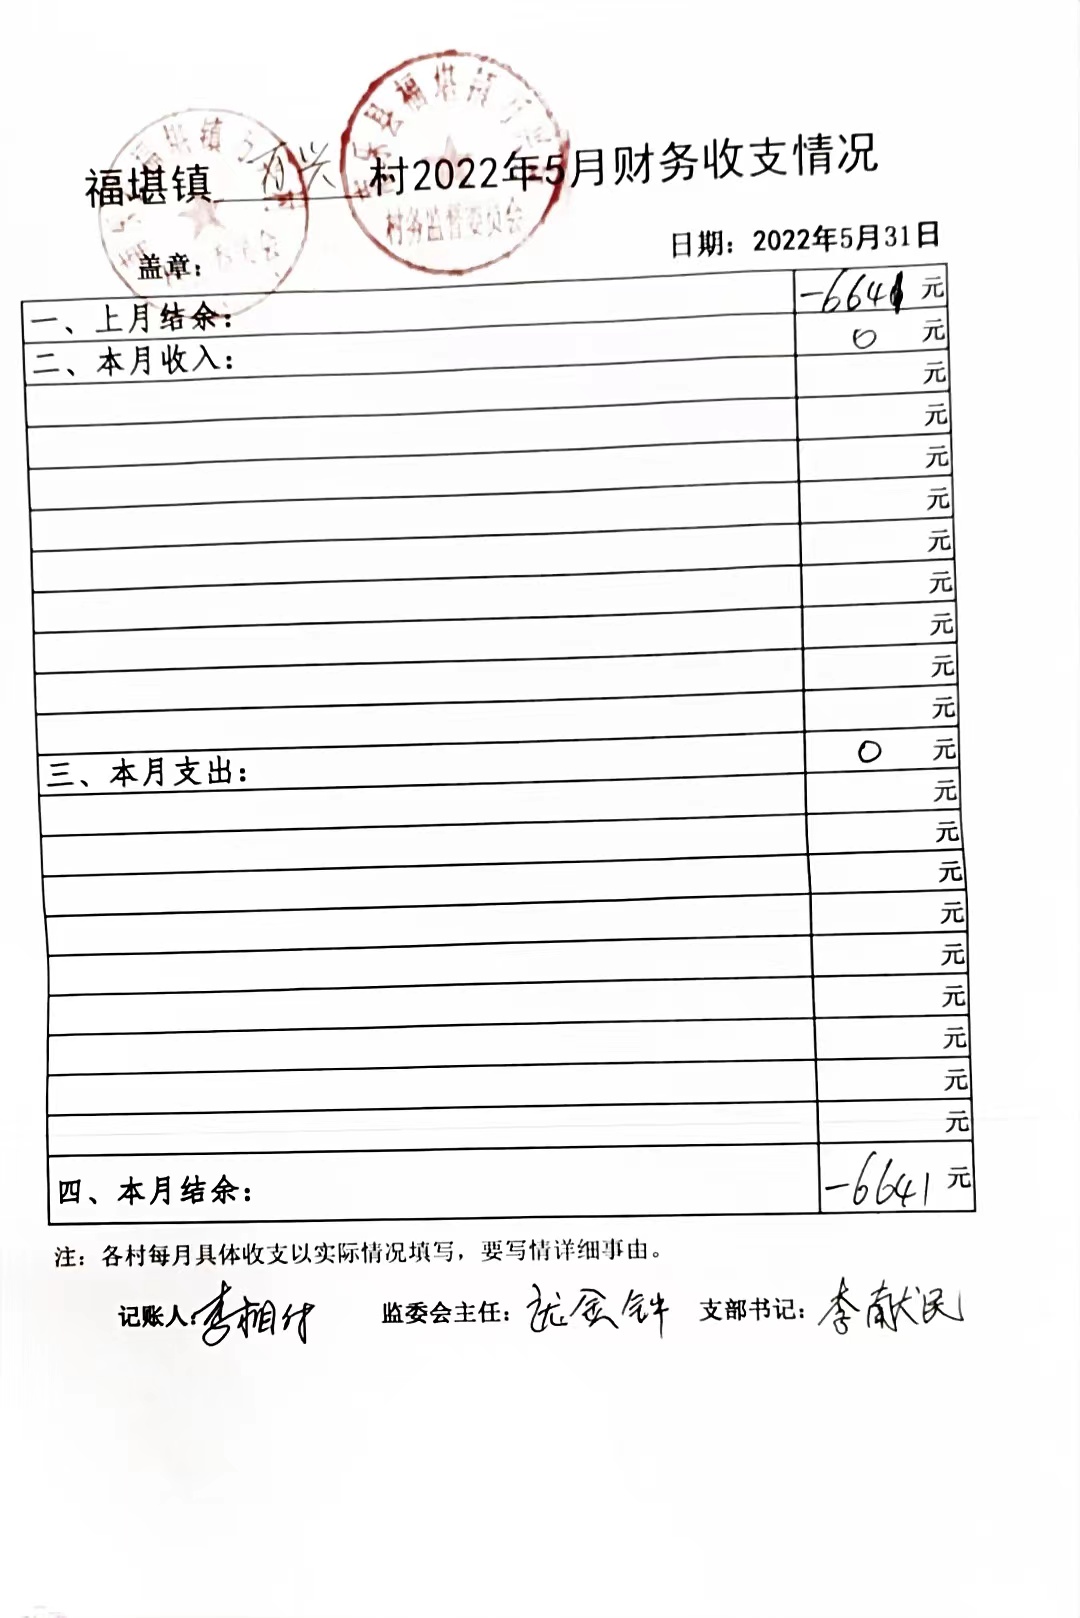 福堪镇 村2022年5月财务收支情况
村务监督委员会
盖章： 日期：2022年5月31日
一、上月结余： -6641 元
二、本月收入： 0 元
元
元
元
元
元
元
元
元
元
三、本月支出： 0 元
元
元
元
元
元
元
元
元
元
四、本月结余： -6641 元
注：各村每月具体收支以实际情况填写，要写情详细事由。
记账人：李相付 监委会主任： 支部书记：李献民